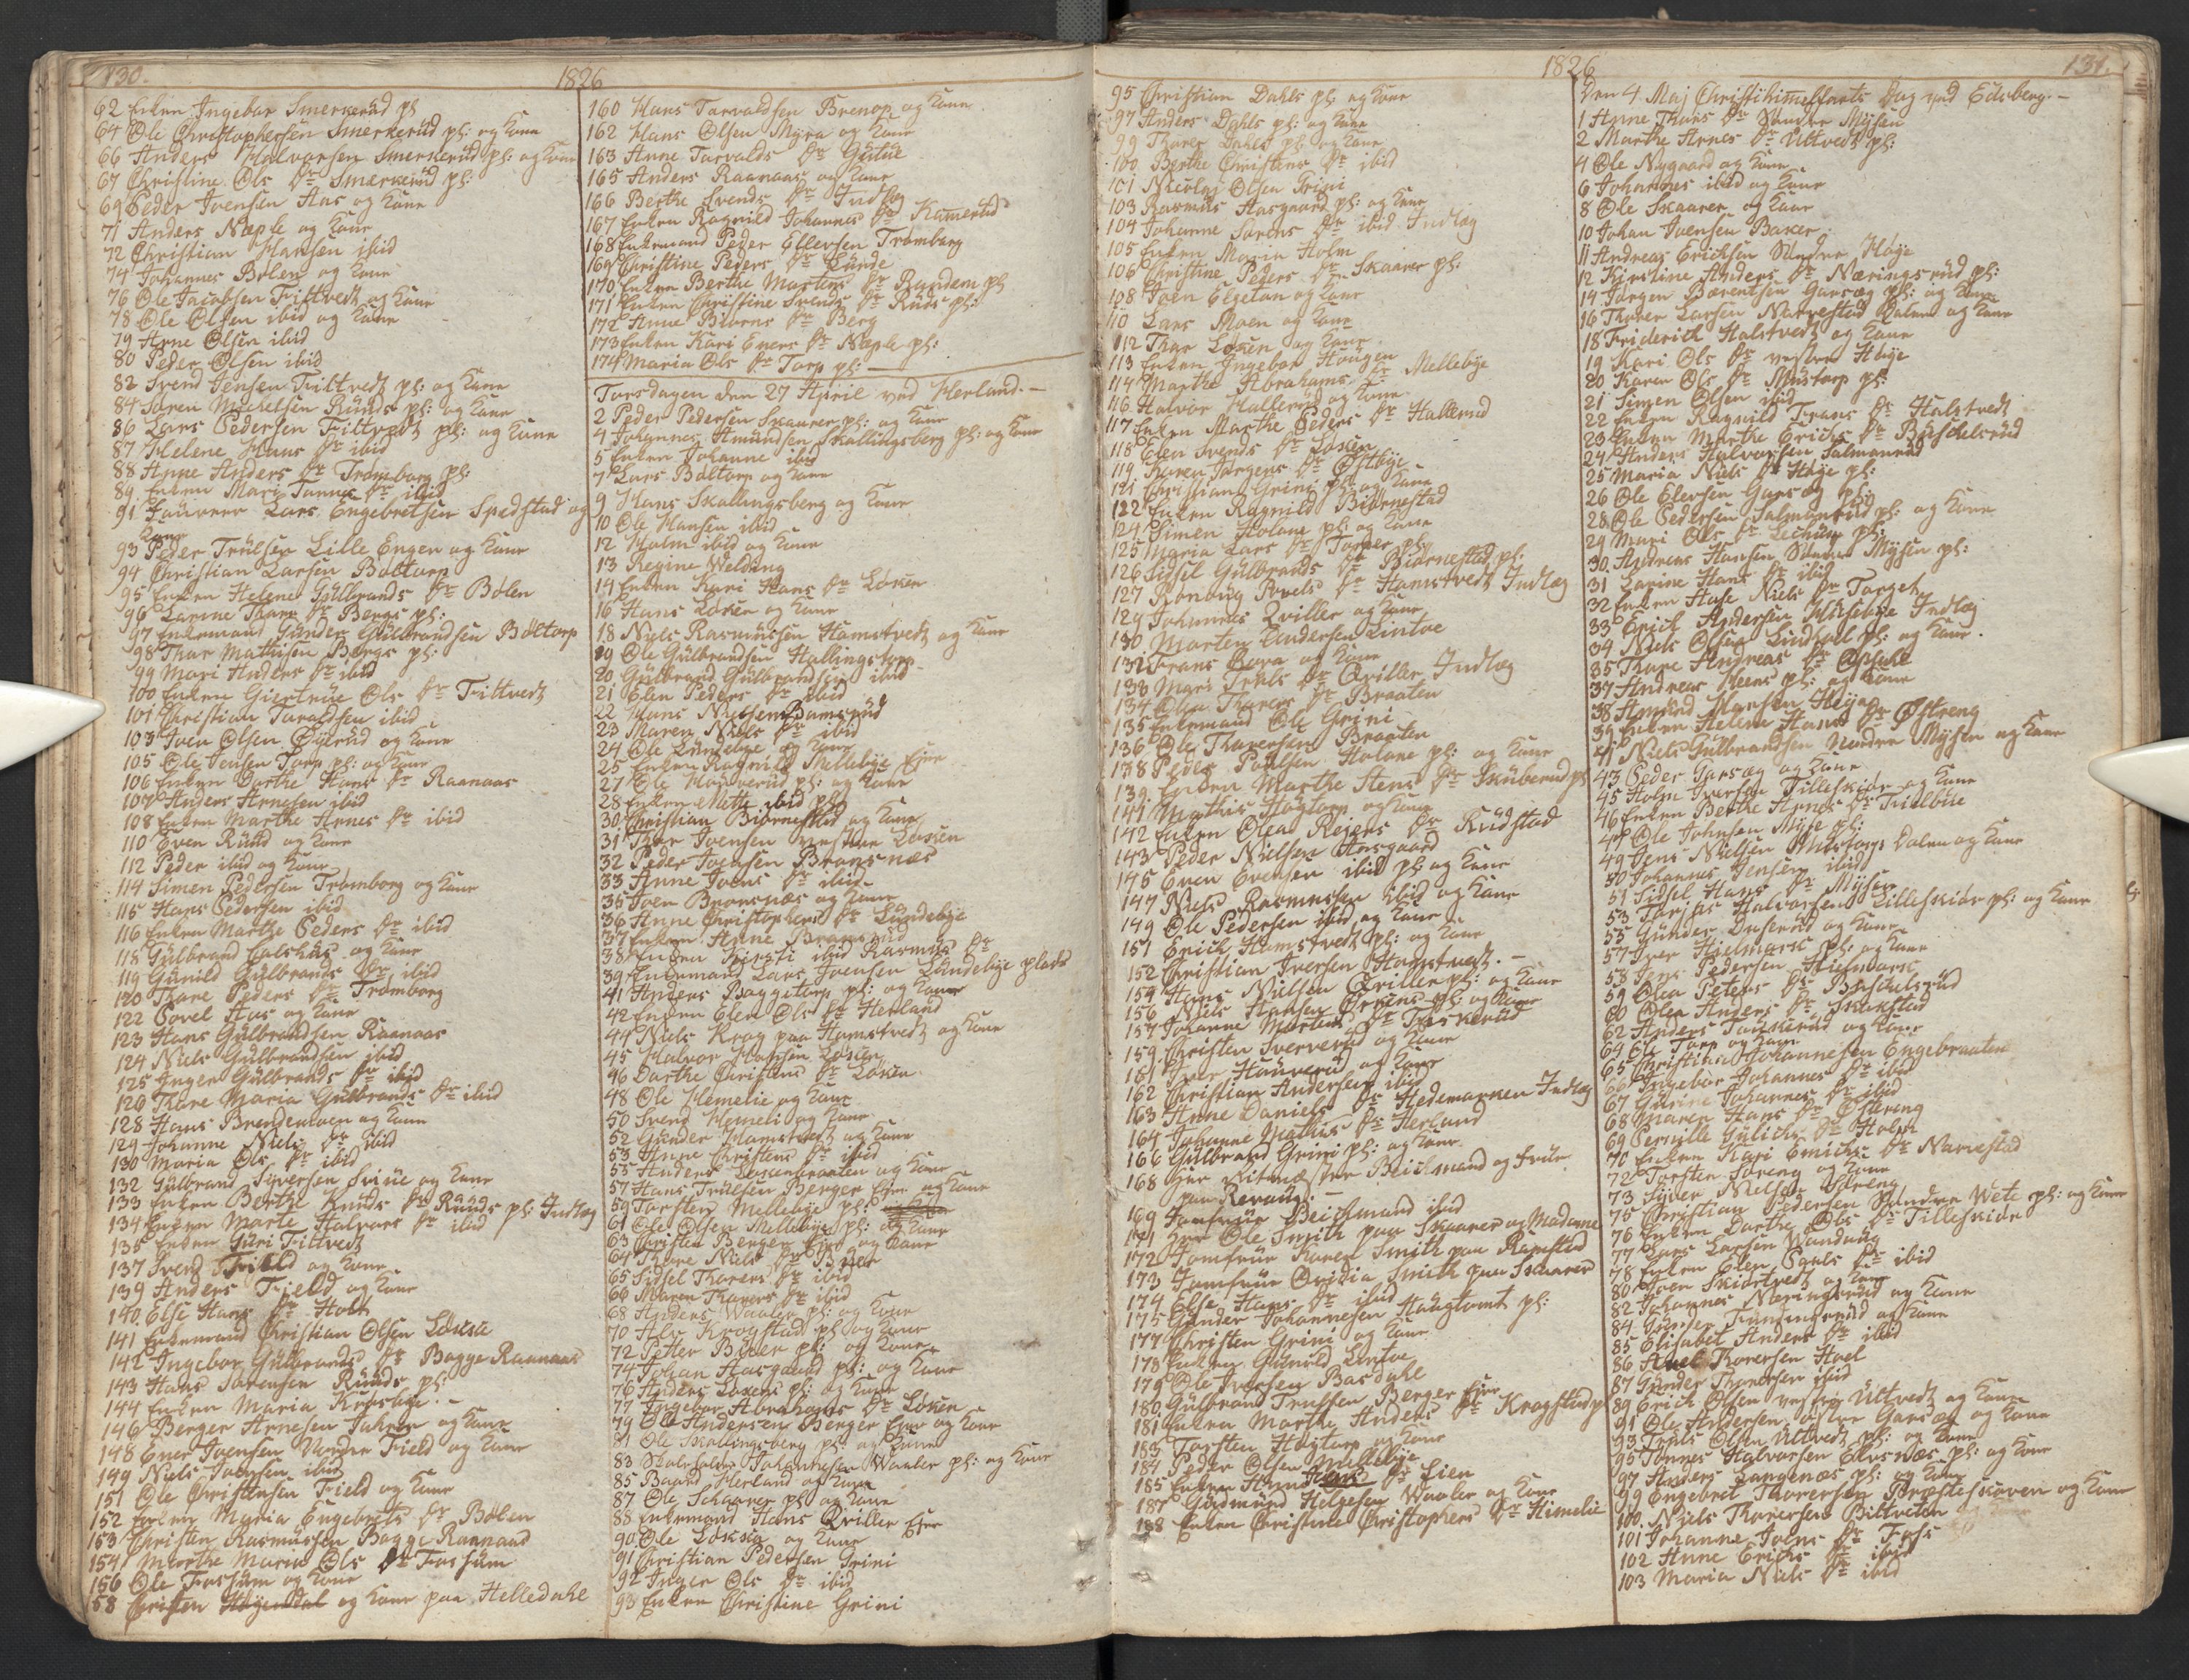 130.
1826
62 Enken Ingebor Smerkerud pl
64 Ole Christophersen Smerkerüd pl: og Kone
66 Anders Halvorsen Smerkerüd pl: og Kone
67 Christine Ols Dr Smerkerüd pl:
69 Peder Joensen Aas og Kone
71 Anders Næple og Kone
72 Christian Hansen ibid
74 Johannes Bølen og Kone
76 Ole Jacobsen Fittvedt og Kone
78 Ole Olsen ibid og Kone
79 Arne Olsen ibid
80 Peder Olsen ibid
82 Svend Jensen Fittvedt pl: og Kone
84 Søren Michelsen Ründs pl: og Kone
86 Lars Pedersen Fittvedt pl: og Kone
87 Helene Hans Dr ibid
88 Anne Anders Dr Trømborg pl:
89 Enken Mari Dr ibid
91 Lars Engebretsen Spedstad og
Kone
93 Peder Trülsen Lille Engen og Kone
94 Christian Larsen Bøltorp
95 Enken Helene Gülbrands Dr Bølen
96 Larine Thore Dr Bergs pl:
97 Enkemand Günder Gülbrandsen Bøltorp
98 Thor Mathisen Bergs pl:
99 Mari Anders Dr ibid
100 Enken Giertrüe Ols Dr Fittvedt
101 Christian Taraldsen ibid
103 Iven Olsen Øÿerüd og Kone
105 Ole Jensen Torp pl: og Kone
106 Enken Dorthe Hans Dr Raanaas
107 Anders Arnesen ibid
108 Enken Marthe Arnes Dr ibid
110 Even Ründ og Kone
112 Peder ibid og Kone
114 Simen Pedersen Trømborg og Kone
115 Hans Pedersen ibid
116 Enken Marthe Peders Dr ibid
118 Gülbrand og Kone
119 Günild Gülbrands Dr ibid
120 Thore Peders Dr Trømborg
122 Povel Aas og Kone
123 Hans Gülbrandsen Raanaas
124 Niels Gülbrandsen ibid
125 Inger Gülbrands Dr ibid
126 Thore Maria Gülbrands Dr ibid
128 Hans Brendemoen og Kone
129 Johanne Niels Dr ibid
130 Maria Ols Dr ibid
132 Gülbrand Siversen og Kone
133 Enken Berthe Knuds Dr Ründs pl: Indlæg
134 Enken Marte Halvors Dr ibid
135 Enken Güri Fittvedt
137 Svend Field og Kone
139 Anders Field og Kone
140 Else Hans Dr Holt
141 Enkemand Christian Olsen Løken
142 Ingebor Gülbrands Dr Bagge Raanaas
143 Hans Sørensen Ründs pl:
144 Enken Maria
146 Berger Arnesen og Kone
148 Ener Joensen Nordre Field og Kone
149 Niels Joensen ibid
151 Ole Christensen Field og Kone
152 Enken Maria Engebrets Dr Bølen
153 Christen Rasmüssen Bagge Raanaas
154 Marthe Maria Ols Dr Fossüm
156 Ole Fossüm og Kone
58 Christen og Kone paa Helledahl
160 Hans Torvaldsen Brenop og Kone
162 Hans Olsen Mÿra og Kone
163 Anne Torvalds Dr
165 Anders Raanaas og Kone
166 Berthe Svends Dr Indlæg
167 Enken Ragnild Johannes Dr Kamerüd
168 Enkemand Peder Ellevsen Trømborg
169 Christine Peders Dr Lünde
170 Enken Berthe Mortens Dr Randem pl
171 Enken Christine Svends Dr Rüds pl:
172 Anne Biørns Dr Berg
173 Enken Kari Eners Dr Næple pl:
174 Maria Ols Dr Torp pl:
Torsdagen den 27 April ved Herland.
2 Peder Pedersen Skaarer pl: og Kone
4 Johannes Amundsen Skallingsberg pl: og Kone
5 Enken Johanne ibid
7 Lars Bøltorp og Kone
9 Hans Skallingsberg og Kone
10 Ole Hansen ibid
12 Holm ibid og Kone
13 Regine Welding
14 Enken Kari Hans Dr Løken
16 Hans Løken og Kone
18 Niels Rasmüssen Hamstvedt og Kone
19 Ole Gülbrandsen Hallingstorp
20 Gülbrand Gülbrandsen ibid
21 Elen Peders Dr ibid
22 Hans Nielsen Bamsrüd
23 Maren Niels Dr ibid
24 Ole Lündebye og Kone
25 Enken Ragnild Mellebÿe Eier
27 Ole pl: og Kone
28 Enken Mette ibid pl:
30 Christian Biørnestad og Kone
31 Thor Joensen Løken
32 Peder Joensen Bronsnæs
33 Anne Joens Dr ibid
35 Joen Bronsnæs og Kone
36 Anne Christophers Dr Lündebÿe
37 Enken Anne
38 Enken ibid Rasmüs Dr
39 Enkemand Lars Joensen Lündebÿe plads
41 Anders Baggetorp pl: og Kone
42 Enken Elen Ols Dr Herland
44 Niels Krog paa Hamstvedt og Kone
45 Halvor Hansen Løken
46 Dorthe Christens Dr Løken
48 Ole Hemelie og Kone
50 Svend Hemeli og Kone
52 Günder Hamstvedt og Kone
53 Anne Christens Dr ibid
55 Anders Løkenbraaten og Kone
57 Hans Trülsen Berger Eier og Kone
59 Torsten Mellebÿe pl:
61 Ole Olsen Mellebÿe pl: og Kone
63 Christen Berger Eier og Kone
64 Thore Niels Dr
65 Sidsel Thorers Dr ibid
66 Maren Thorers Dr ibid
68 Anders Waaler pl: og Kone
70 Krogstad pl: og Kone
72 Petter pl: og Kone
74 Johan Aasgaard pl: og Kone
76 Anders Løkens pl: og Kone
77 Ingebor Abrahams Dr Løken
79 Ole Andersen Berger Eier og Kone
81 Ole Skallingsberg pl: og Kone
83 Johannesen Waaler pl: og Kone
85 Baard Herland og Kone
87 Ole Schaarer pl: og Kone
88 Enkemand Hans Qviller Eier
90 Ole Løken og Kone
91 Christian Pedersen Grini
92 Inger Ols Dr ibid
93 Enken Christine Grini
1826
131.
95 Christian Dahls pl: og Kone
97 Anders Dahls pl: og Kone
99 Thorer Dahls pl: og Kone
100 Berthe Christens Dr ibid
101 Nicolaj Olsen Grini
103 Rasmüs Aasgaard pl: og Kone
104 Johanne Sørens Dr ibid Indlæg
105 Enken Marie Holm
106 Christine Peders Dr Skaarer pl:
108 Joen Egetan og Kone
110 Lars Moen og Kone
112 Thor Løken og Kone
113 Enken Ingebor Hougen
114 Marthe Abrahams Dr Mellebÿe
116 Halvor Hallerüd og Kone
117 Enken Marthe Peders Dr Hallerud
118 Elen Svends Dr Løken
119 Karen Jørgens Dr Østbÿe
121 Christian Grini pl: og Kone
122 Enken Ragnild Biørnestad
124 Simen Holane pl: og Kone
125 Maria Lars Dr Torper pl:
126 Sidsel Gülbrands Dr Biørnestad pl:
127 Rønnaug Povels Dr Hamstvedt Indlæg
129 Johannes Qviller og Kone
130 Morten Andersen Lintoe
132 Frans Kora og Kone
133 Mari Dr Qviller Indlæg
134 Olea Thorers Dr Braaten
135 Enkemand Ole Grini
136 Ole Thorersen Braaten
138 Peder Povelsen Holane pl: og Kone
139 Enken Marthe Stens Dr pl
141 Mathis Høytorp og Kone
142 Enken Olea Reiers Dr Rüdstad
143 Peder Nielsen Aasgaard
145 Even Evensen ibid pl: og Kone
147 Niels Rasmussen ibid og Kone
149 Ole Pedersen ibid og Kone
151 Erich Hamstvedt pl: og Kone
152 Christian Iversen Hamstvedt.
154 Hans Nielsen Qviller pl: og Kone
156 Niels Hansen pl: og Kone
157 Johanne Mortens Dr
159 Christen Sververüd og Kone
161 Iver Haüverüd og Kone
162 Christian Andersen ibid
163 Anne Daniels Dr Hedemarken Indlæg
164 Johanne Mathis Dr Herland
166 Gülbrand Grini pl: og Kone
168 Herr Ritmester Beichmand og Frue
paa Kevaug.
169 Jomfrüe Beichmand ibid
171 Herr Ole Smith paa Skaarer og Madame
172 Jomfrüe Karen Smith paa Ramstad
173 Jomfrüe Ovidia Smith paa Skaarer
174 Else Hans Dr ibid
175 Günder Johannesen Haugtomt pl:
177 Christen Grini og Kone
178 Enken Günild Lintoe
179 Ole Iversen Basdahl
180 Gülbrand Trulsen Berger Eier
181 Enken Marthe Anders Dr Krogstad p
183 Torsten Høÿtorp og Kone
184 Peder Olsen Mellebÿe
185 Enken Anne Dr Lien
187 Gudmünd Helgesen Waaler og Kone
188 Enken Christine Christophers Dr Himelie
Den 4. Maj Christihimmelfarts Dag ved Eidsberg.
1 Anne Thors Dr Søndre Mÿsen
2 Marthe Arnes Dr Ültvedt pl:
4 Ole Nygaard og Kone
6 Johannes ibid og Kone
8 Ole Skaarer og Kone
10 Johan Joensen
11 Andreas Erichsen Søndre Høÿe
12 Kirstine Anders Dr Næringsrüd pl:
14 Jørgen Bærentsen Garseg pl: og Kone
16 Thorer Larsen Narvestad Dalen og Kone
18 Friderich Halstvedt og Kone
19 Kari Ols Dr vestre Høÿe
20 Karen Ols Dr Müstorp pl:
21 Simen Olsen ibid
22 Enken Ragnild Frans Dr Halstvedt
23 Enken Marthe Erichs Dr
24 Anders Halvorsen Salmonrüd
25 Maria Niels Dr Høÿe pl:
26 Ole Elevsen Garseg pl:
28 Ole Pedersen Salmonrüd pl: og Kone
29 Mari Ols Dr Lechum pl:
30 Andreas Hansen Søndre Mÿsen pl:
31 Larine Hans Dr ibid
32 Enken Aase Niels Dr Torget
33 Erich Andersen Indlæg
34 Niels Olsen Lindhol pl: og Kone
35 Thore Andreas Dr Opsahl
37 Andreas Meens pl: og Kone
38 Amund Hansen Høÿe
39 Enken Helene Hans Dr Østreng
41 Niels Gülbrandsen Nordre Mÿsen og Kone
43 Peder Garseg og Kone
45 Holm Iversen Tilleskiør og Kone
46 Enken Berthe Arnes Dr
47 Ole Johnsen Mÿre pl:
49 Jens Nielsen Müstorp Dalen og Kone
50 Johannes Jensen ibid
51 Sidsel Hans Dr Mÿsen
53 Torjus Halvorsen Lilleskiør pl: og Kone
55 Günder og Kone
57 Iver Hielmark pl: og Kone
58 Jens Pedersen Hielmark
59 Olea Peters Dr
60 Olea Anders Dr Skakstad
62 Anders og Kone
64 Ole Torp og Kone
65 Christian Johannesen Engebraaten
66 Ingebor Johannes Dr ibid
67 Gürine Johannes Dr ibid
68 Maren Hans Dr Østereng
69 Pernille Gülichs Dr Holm
70 Enken Kari Emichs Dr Narvestad
72 Torsten Foreng og Kone
73 Syver Nielsen Østreng
75 Christian Pedersen Søndre Wete pl: og Kone
76 Enken Dorthe Ols Dr Tilleskiør
77 Lars Larsen
78 Enken Elen Povls Dr ibid
80 Iver Skiørtvedt og Kone
82 Johannes Næringsrüd og Kone
84 Günder og Kone
85 Elisabet Anders Dr ibid
86 Thorersen Hoel
87 Günder Thorersen ibid
89 Erich Olsen vestre Ültvedt og Kone
91 Ole Andersen østre Garseg og Kone
93 Trüls Olsen Ültvedt pl: og Kone
95 Tønnes Halvorsen pl: og Kone
97 Anders Langenæs pl: og Kone
99 Engebret Thorersen Præsteskoven og Kone
100 Niels Thorersen
101 Johanne Joens Dr Foss
102 Anne Erichs Dr ibid
103 Maria Niels Dr ibid